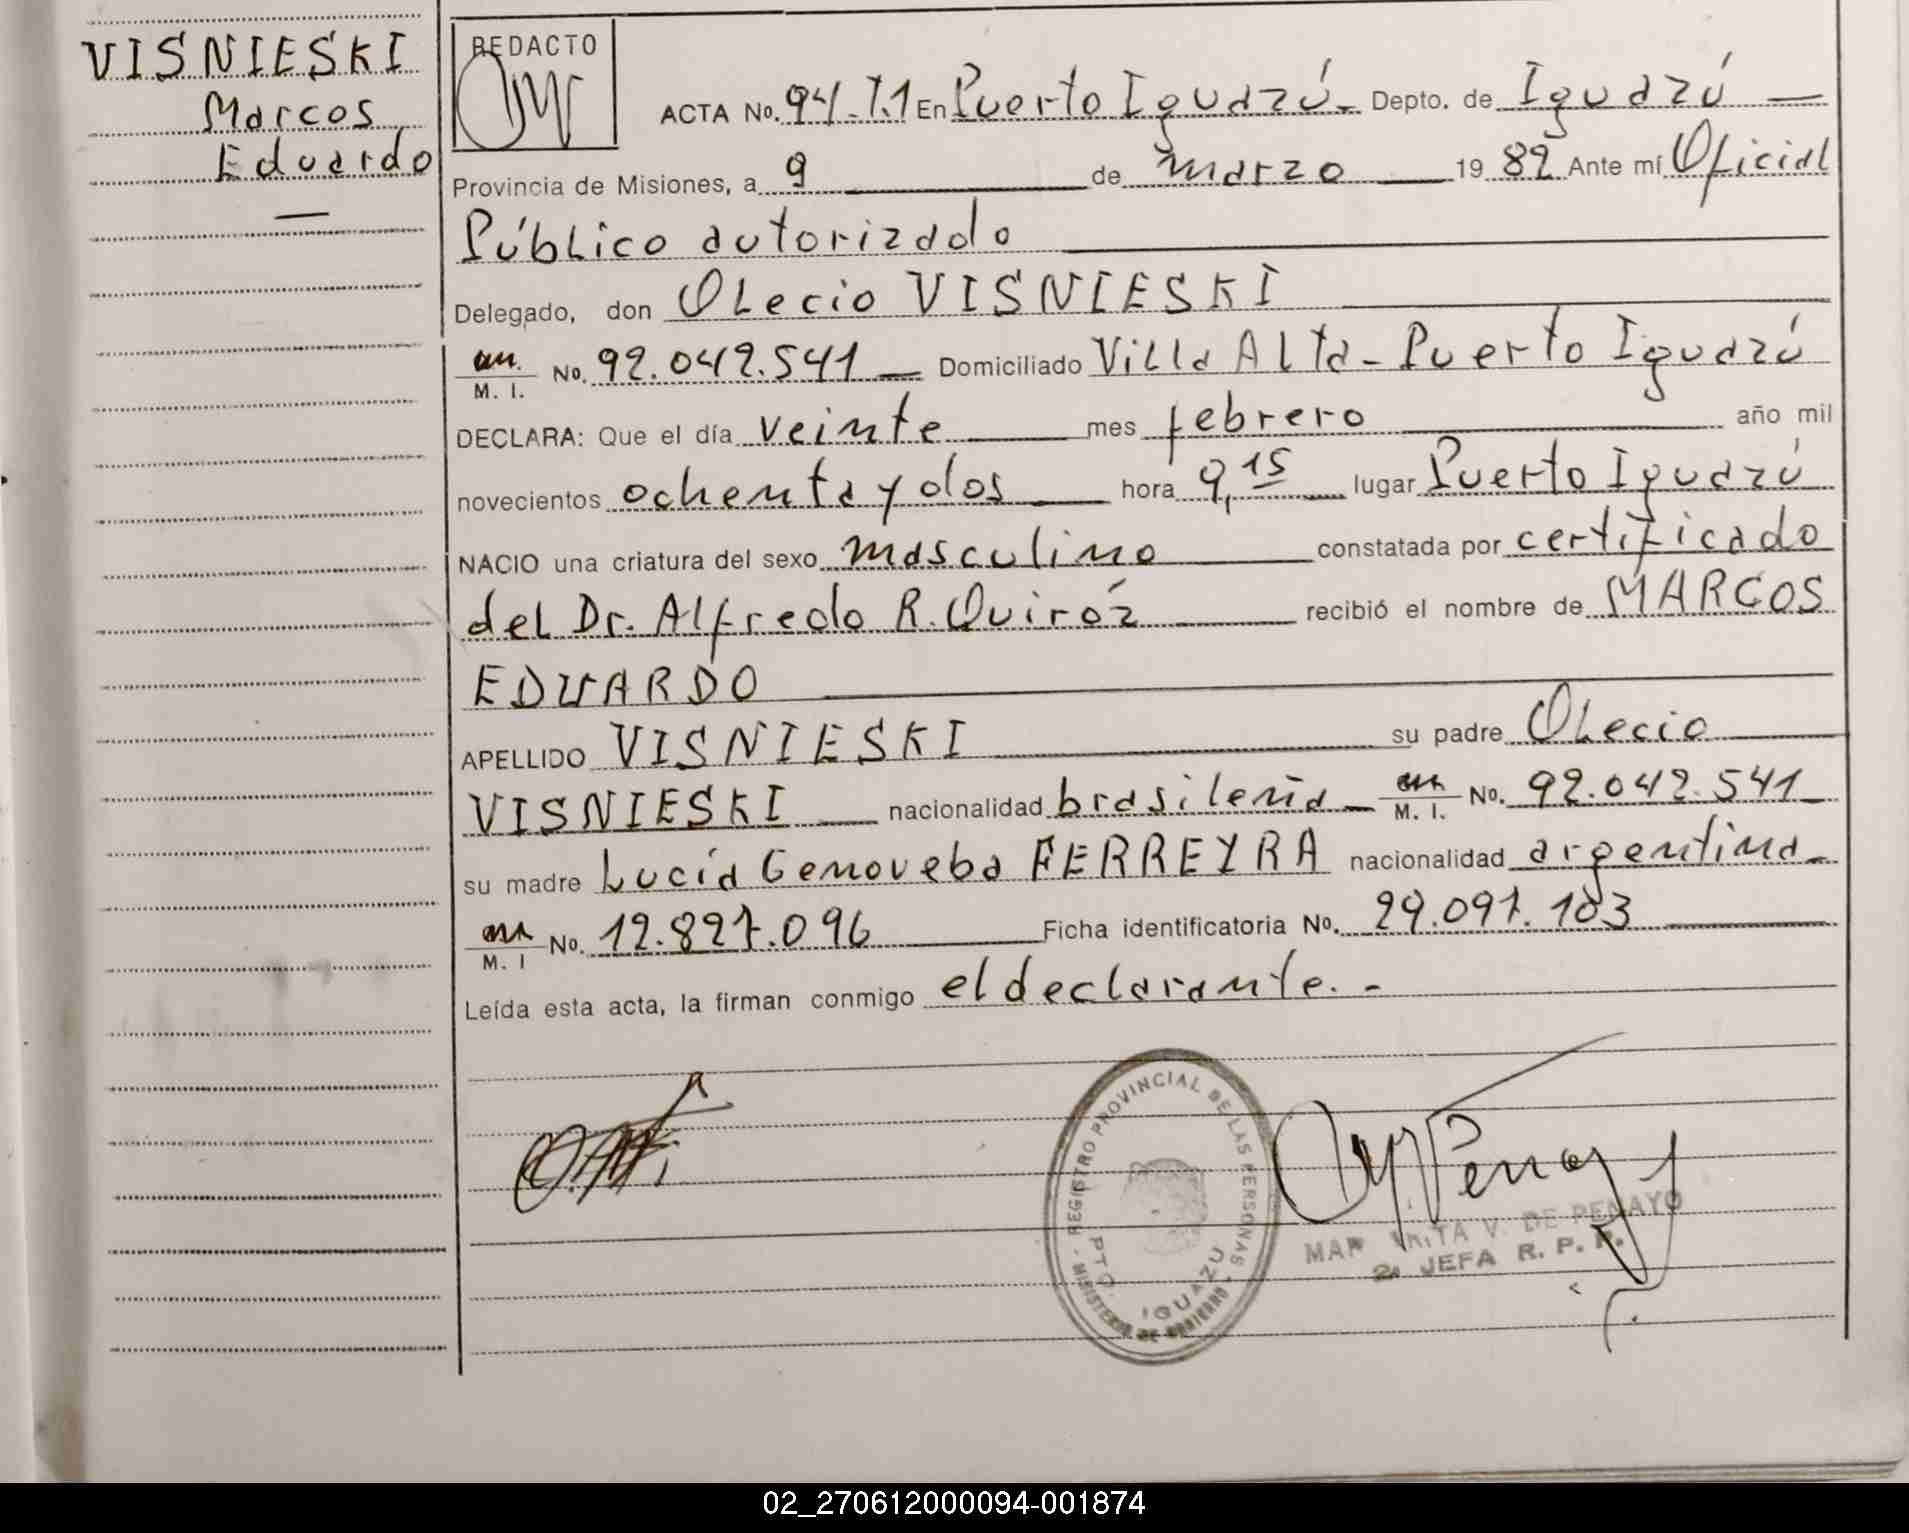 VISNIESKI
Marcos
Eduardo
—
REDACTO
ACTA No. 94-T.1 En Puerto Iguazú.- Depto. de Iguazú —
Provincia de Misiones, a 9 — de marzo — 19 82 Ante mí Oficial
Público autorizado
Delegado, don Olecio VISNIESKI
M. I. No. 92.042.541 — Domiciliado Villa Alta - Puerto Iguazú
DECLARA: Que el día veinte — mes febrero — año mil
novecientos ochenta y dos — hora 9,15 — lugar Puerto Iguazú
NACIO una criatura del sexo masculino — constatada por certificado
del Dr. Alfredo R. Quiróz — recibió el nombre de MARCOS
EDUARDO
APELLIDO VISNIESKI — su padre Olecio —
VISNIESKI — nacionalidad brasileña — M. I. No. 92.042.541 —
su madre Lucía Genoveba FERREYRA nacionalidad argentina.-
M. I No. 12.827.096 — Ficha identificatoria No. 29.091.103 —
Leída esta acta, la firman conmigo el declarante. -
REGISTRO PROVINCIAL DE LAS PERSONAS
MINISTERIO DE GOBIERNO
PTO. IGUAZU
V. DE PENAYO
2a JEFA R. P. P.
02_270612000094-001874